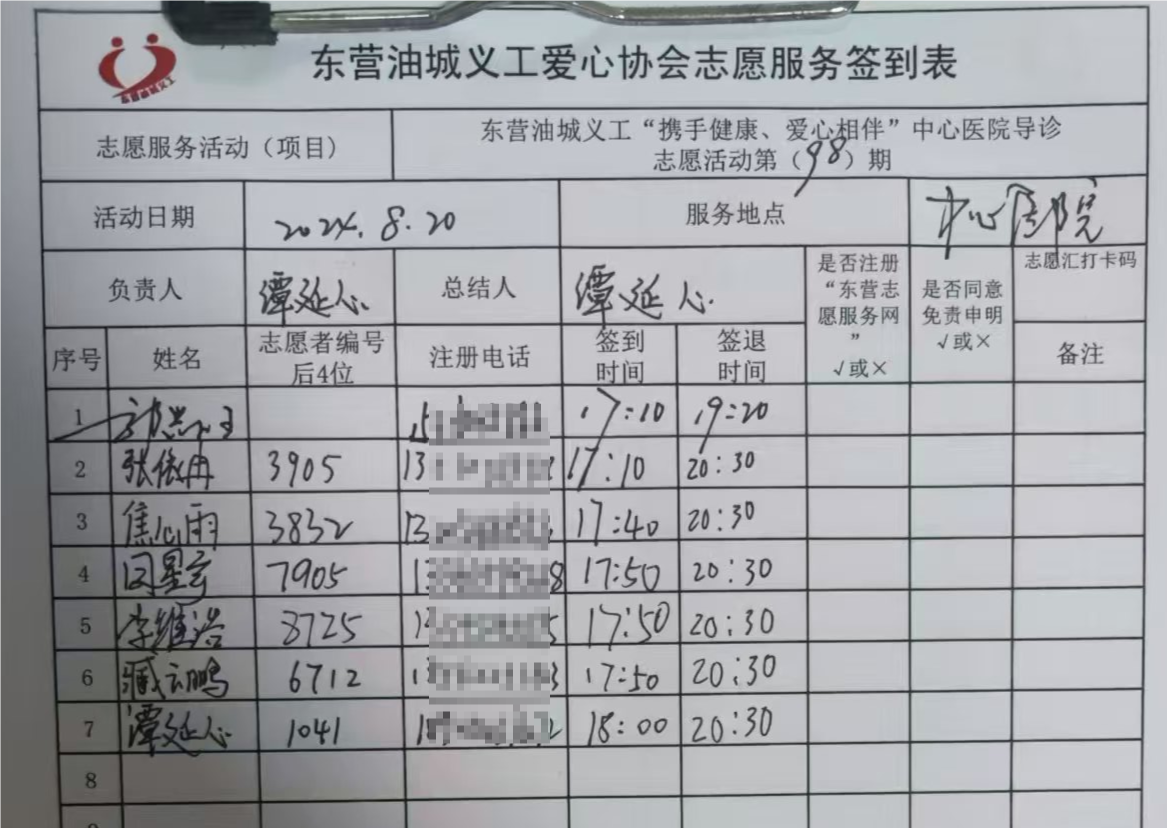 东营油城义工爱心协会志愿服务签到表
志愿服务活动（项目） 东营油城义工“携手健康、爱心相伴”中心医院导诊
志愿活动第（98）期
活动日期 2024.8.20 服务地点 中心医院
负责人 谭延心 总结人 谭延心 是否注册“东营志愿服务网”√或× 是否同意免责申明√或× 志愿汇打卡码
序号 姓名 志愿者编号后4位 注册电话 签到时间 签退时间 备注
1 15 17:10 19:20
2 张依冉 3905 13 17:10 20:30
3 焦心雨 3832 13 17:40 20:30
4 7905 17:50 20:30
5 李维浩 8725 17:50 20:30
6 臧云鹏 6712 17:50 20:30
7 谭延心 1041 18:00 20:30
8